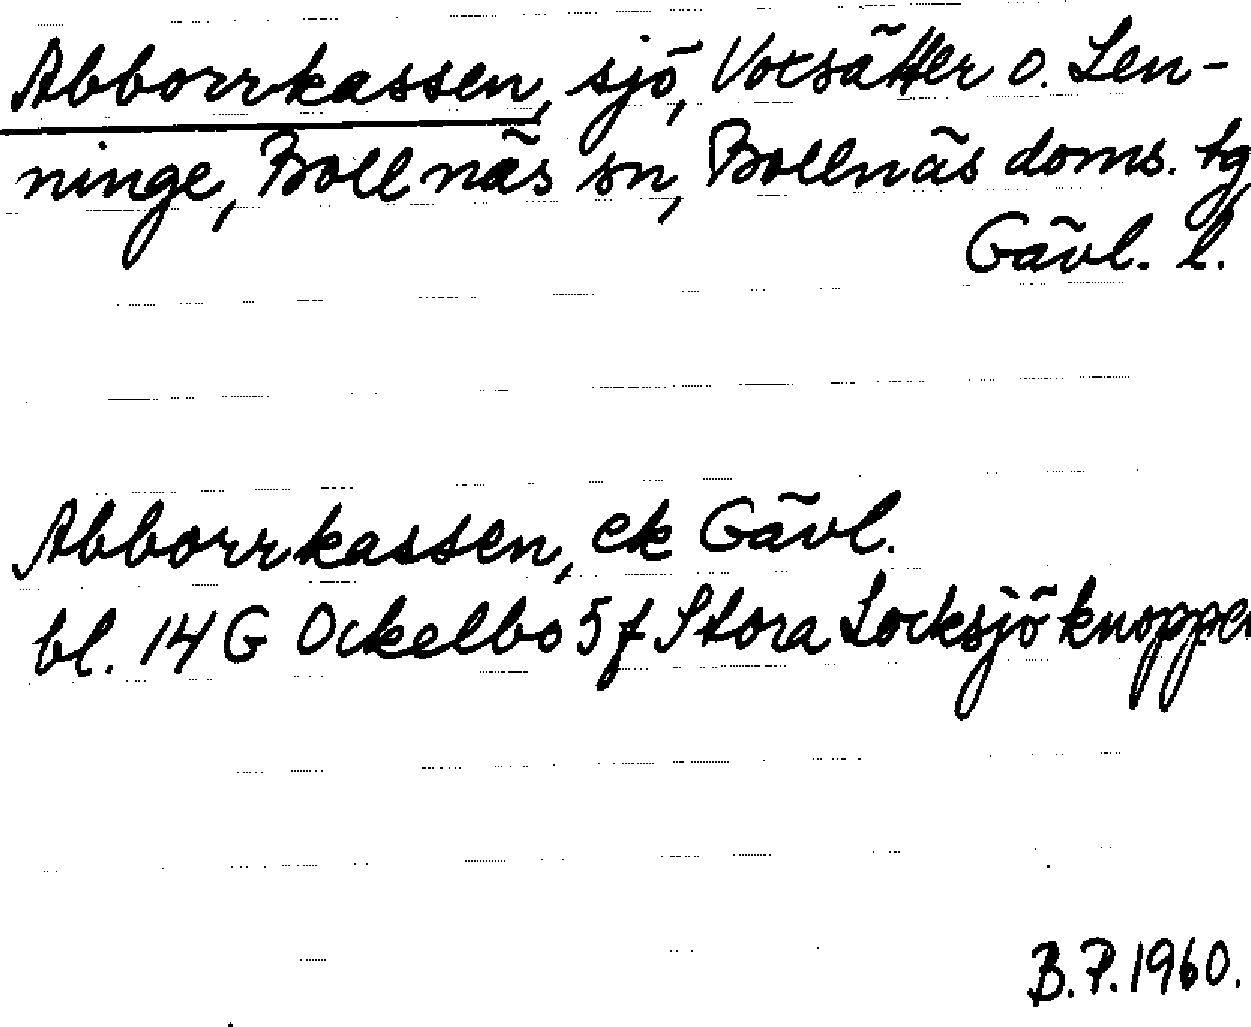 Abborrkassen, sjö, Votsätter o. Len-
ninge, Bollnäs sn, Bollnäs doms. tg,
Gävl. l.
Abborrkassen, ek Gävl.
bl. 14 G Ockelbo 5 f Stora Locksjöknoppen
B.P. 1960.